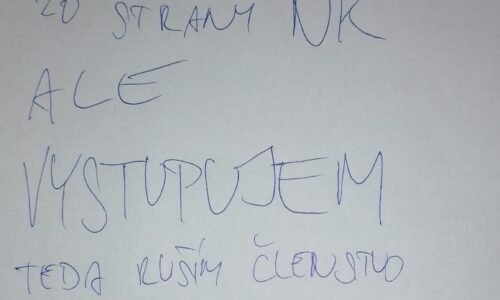 ZO STRANY NK
ALE
VYSTUPUJEM
TEDA RUŠÍM ČLENSTVO